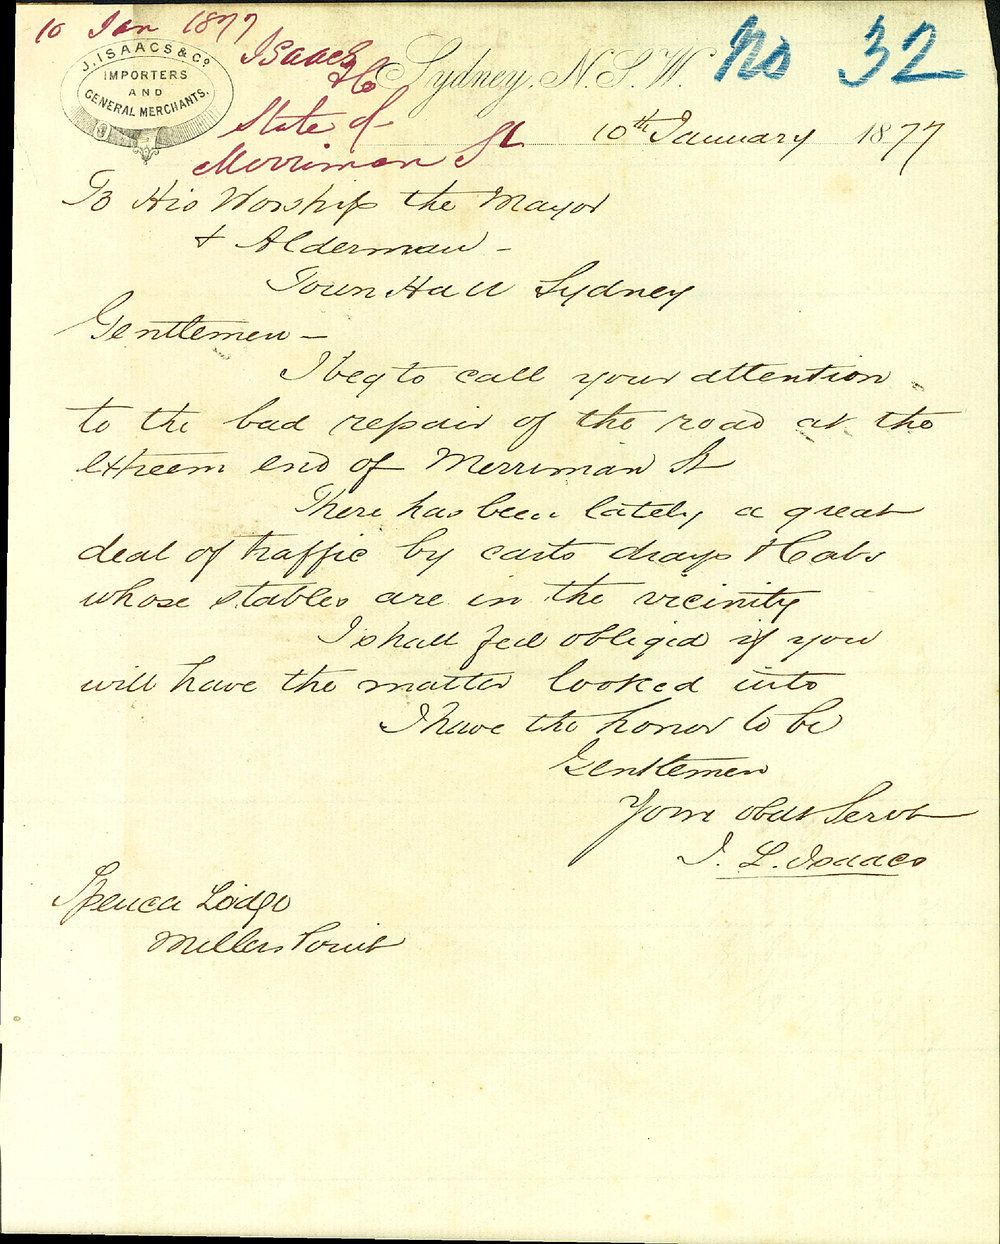 10 Jan 1877
J. ISAACS & Co
IMPORTERS
AND
GENERAL MERCHANTS.
Isaacs
& Co
State of
Merriman St
Sydney, N.S.W.
No 32
10th January 1877
To His Worship the Mayor
& Alderman -
Town Hall Sydney
Gentlemen -
I beg to call your attention
to the bad repair of the road at the
extreem end of Merriman St
There has been lately a great
deal of traffic by carts drays & Cabs
whose stables are in the vicinity
I shall feel obligid if you
will have the matter looked into
I have the honor to be
Gentlemen
Your obdt Servt
J. L. Isaacs
Lodge
Millers Point